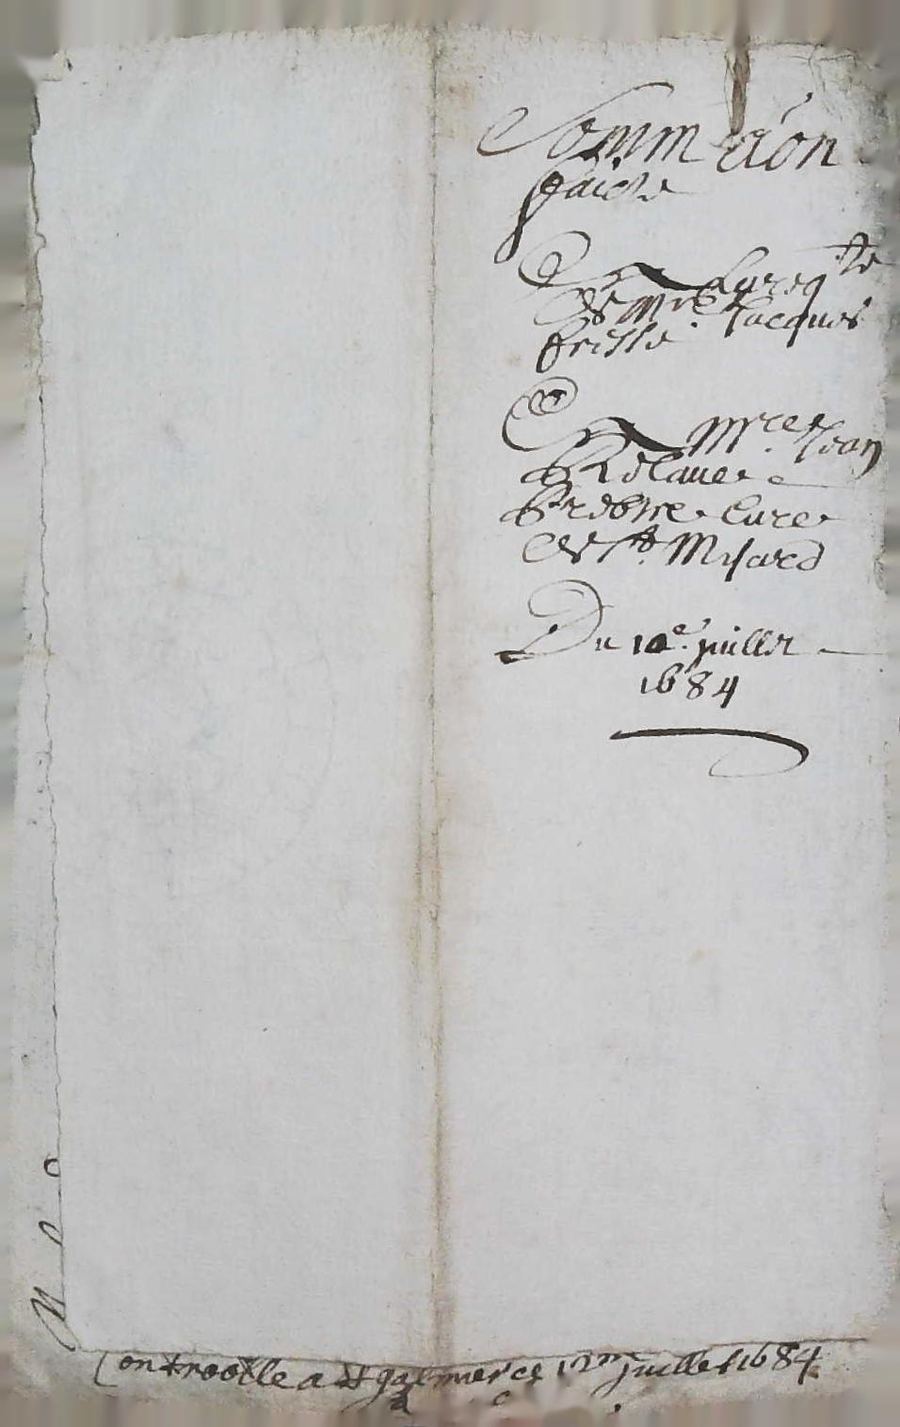 Sommaõn
faicte
A la req^te
de m^re Jacques
brisse
A m^re Jean
delaue
Prebtre Cure
de S^t Missard
Du 10^e juillet
1684
Controolle a s^t galmier ce 12^me juillet 1684